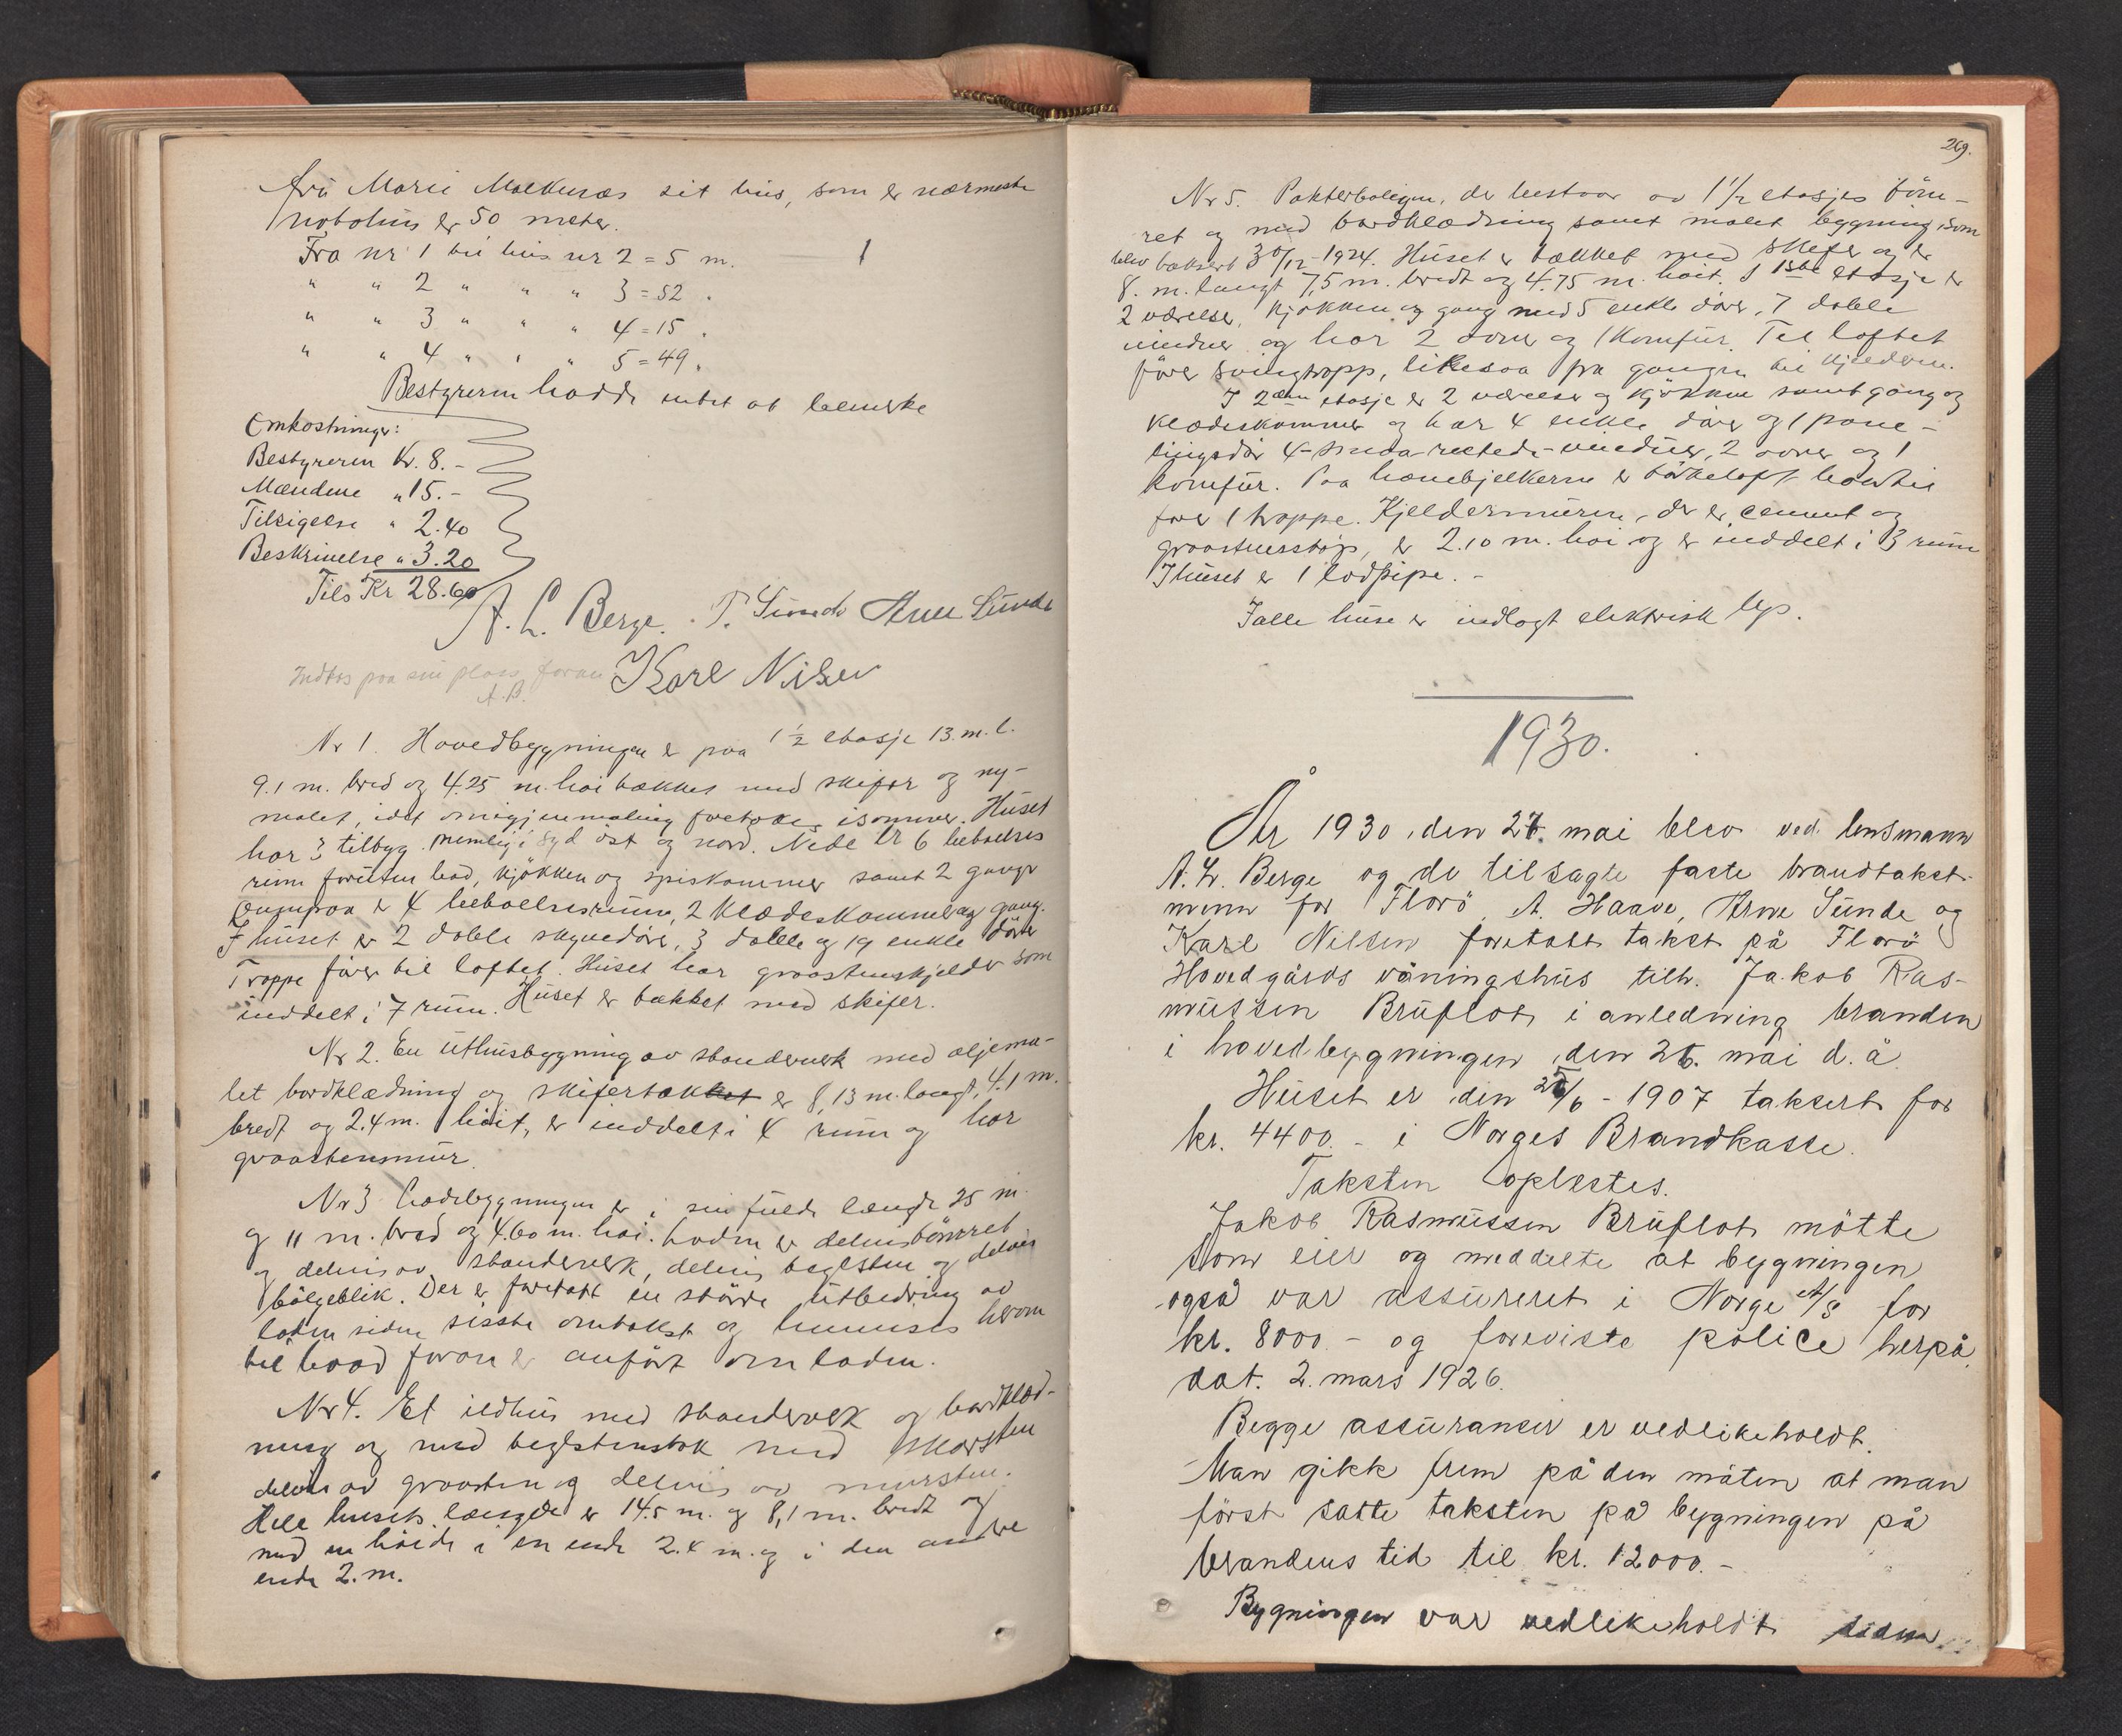 fru Marie Maekuræs sit hus, som er nærmeste
nabohus er 50 meter.
Fra nr 1 til hus nr 2 = 5 m.
" " 2 " " " 3 = 52 .
" " 3 " " " 4 = 15 .
" " 4 " " " 5 = 49 .
Bestyreren hadde intet at bemerke
Omkostninger:
Bestyreren Kr. 8.-
Mændene " 15.-
Tilsigelse " 2.40
Beskrivelse " 3.20
Tils Kr 28.60
A. L. Berge. T. Sunde Arne Sunde
Indtas paa sin plass foran Karl Nilsen
A.B.
Nr 1. Hovedbygningen er paa 1 1/2 etasje 13. m. l.
9.1 m. bred og 4.25 m. høi tækket med skifer og ny-
malet, idet omigjenmaling foretokes isommer. Huset
har 3 tilbyg. nemlig i syd öst og nord. Nede er 6 beboelses
rum foruten bad, kjökken og spiskammer samt 2 gange
Ovenpaa er 4 beboelsesrum, 2 klædeskammer og gang.
I huset er 2 doble skyvedöre, 3 doble og 19 enkle döre
Trappe förer til loftet. Huset har graastenskjelder som
inddelt i 7 rum. Huset er tækket med skifer.
Nr 2. En uthusbygning av standverk med oljema-
let bordklædning og skifertækket er 8,13 m. langt, 4.1 m.
bredt og 2.4 m. höit, er inddelt i 4 rum og har
graastensmur.
Nr 3. Ladebygningen er i sin fulde længde 25 m.
og 11 m. bred og 4.60 m. høi. Laden er delvis tömret
og delvis av standverk, delvis teglsten og delvis
bölgeblik. Der er foretatt en större utbedring av
laden siden sisste omtakst og henvises herom
til hvad foran er anfört om laden.
Nr 4. Et ildhus med standverk og bordklæd-
ning og med teglstenstak med skorsten
delvis av graasten og delvis av mursten.
Hele husets længde er 14.5 m. og 8,1 m. bredt og
med en höide i en ende 2.4 m. og i den andre
ende 2. m.
269.
Nr 5. Pakterboligen, der bestaar av 1 1/2 etasjes töm-
ret og med bordklædning samt malet bygning som
blev taksert 30/12-1924. Huset er tækket med skifer og er
8. m. langt 7,5 m. bredt og 4.75 m. höit. I 1ste etasje er
2 værelser, kjökken og gang med 5 enkle döre, 7 doble
vinduer og har 2 ovner og 1 komfur. Til loftet
förer svingtrapp, likesaa fra gangen til kjelderen.
I 2den etasje er 2 værelser og kjökken samt gang og
klædeskammer og har 4 enkle döre og 1 pane-
lingsdör 4-smaarutede-vinduer, 2 ovner og 1
komfur. Paa hanebjelkerne er törkeloft hvortil
förer 1 trappe. Kjeldermuren, der er cement og
graastensstöp, er 2.10 m. høi og er inddelt i 3 rum
I huset er 1 lodpipe. -
I alle huse er indlagt elektrisk lys.
1930.
År 1930, den 27. mai blev ved lensmann
A. L. Berge og de tilsagte faste brandtakst-
menn for Florö, A. Haave, Arne Sunde og
Karl Nilsen foretatt takst på Florö
Hovedgårds våningshus tilh. Jakob Ras-
mussen Bruflot i anledning branden
i hovedbygningen den 26. mai d. å.
Huset er den 25/6 - 1907 taksert for
kr. 4400.- i Norges Brandkasse.
Taksten oplestes.
Jakob Rasmussen Bruflot mötte
som eier og meddelte at bygningen
også var assureret i Norge A/S for
kr. 8000.- og foreviste police herpå
dat. 2. mars 1926.
Begge assuranser er vedlikeholdt.
Man gikk frem på den måten at man
först satte taksten på bygningen på
brandens tid til kr. 12000.-
Bygningen var vedlikeholdt siden